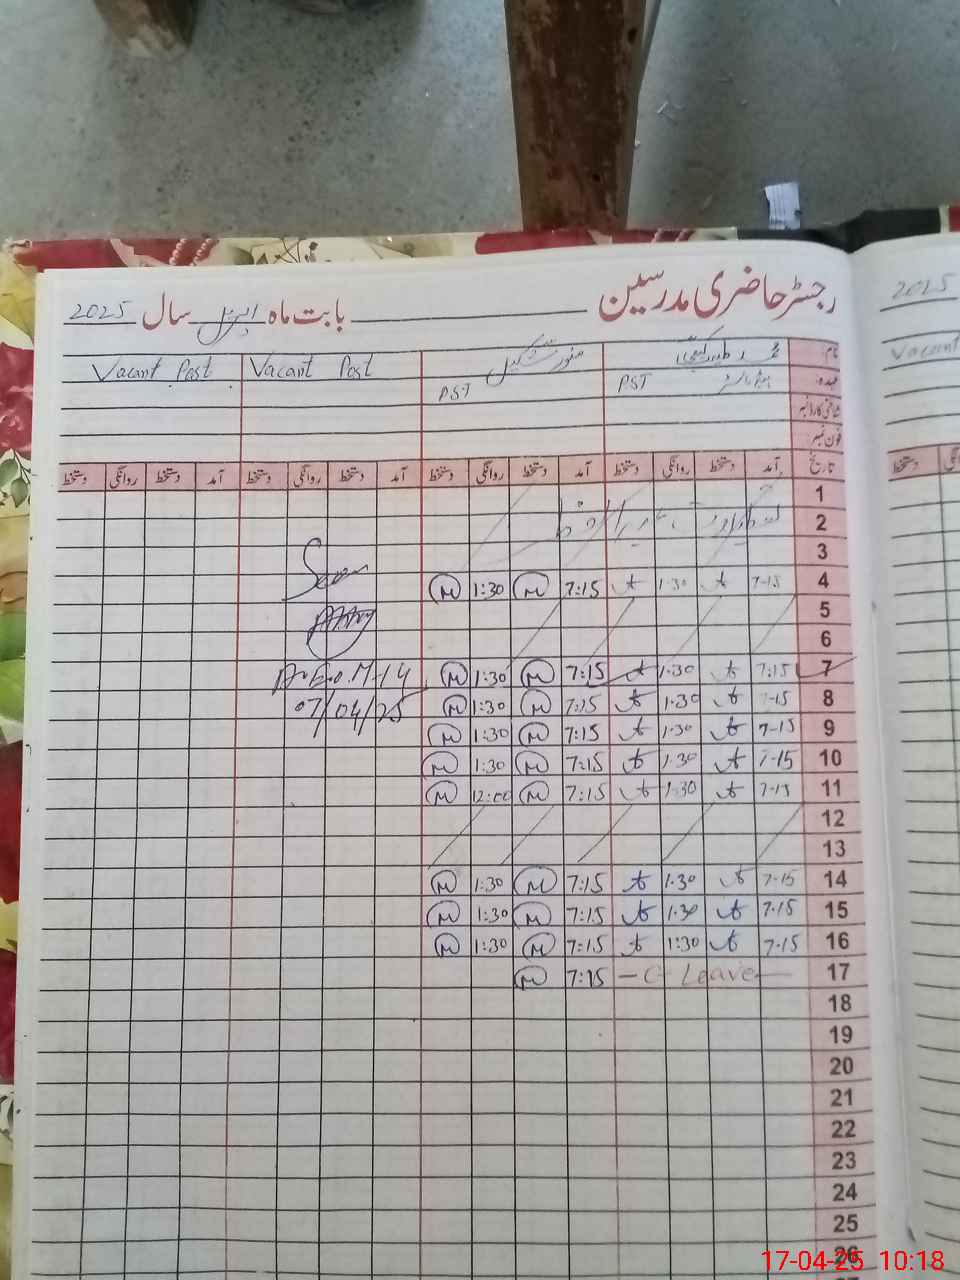 رجسٹر حاضری مدرسین بابت ماہ اپریل سال 2025
2025
نام:
Vacant Post Vacant Post
Vacant
عہدہ: PST PST
شناختی کارڈ نمبر
فون نمبر
تاریخ آمد دستخط روانگی دستخط آمد دستخط روانگی دستخط آمد دستخط روانگی دستخط آمد دستخط روانگی دستخط
دستخط
1
2
3
M 1:30 M 7:15 1:30 7-15 4
5
6
M 1:30 M 7:15 1:30 7:15 7
07/04/25
M 1:30 M 7:15 1:30 7-15 8
M 1:30 M 7:15 1:30 7-15 9
M 1:30 M 7:15 1:30 7-15 10
M 12:00 M 7:15 1:30 7-15 11
12
13
M 1:30 M 7:15 1.30 7-15 14
M 1:30 M 7:15 1.30 7.15 15
M 1:30 M 7:15 1:30 7-15 16
M 7:15 — C Leave — 17
18
19
20
21
22
23
24
25
26
17-04-25 10:18